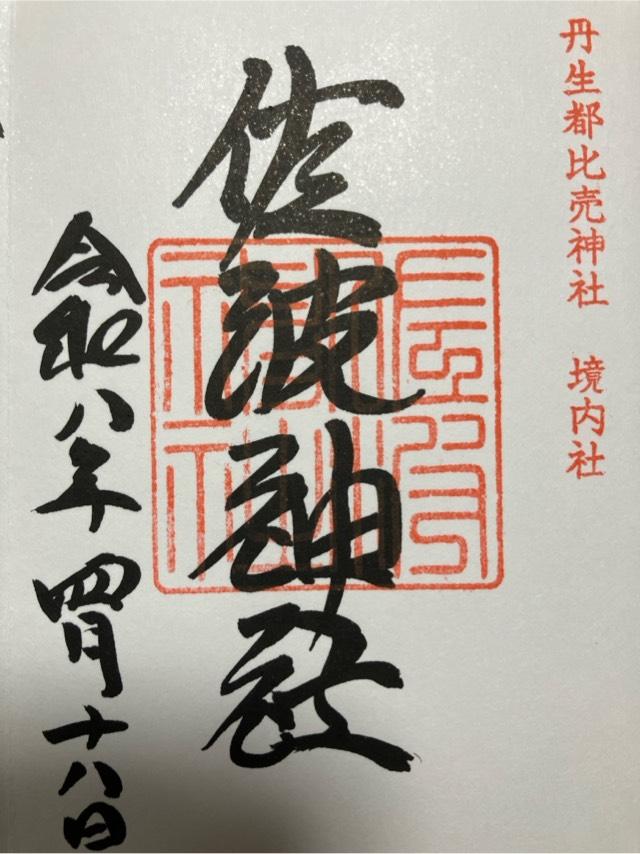 丹生都比売神社 境内社
佐波神社
令和八年四月十八日